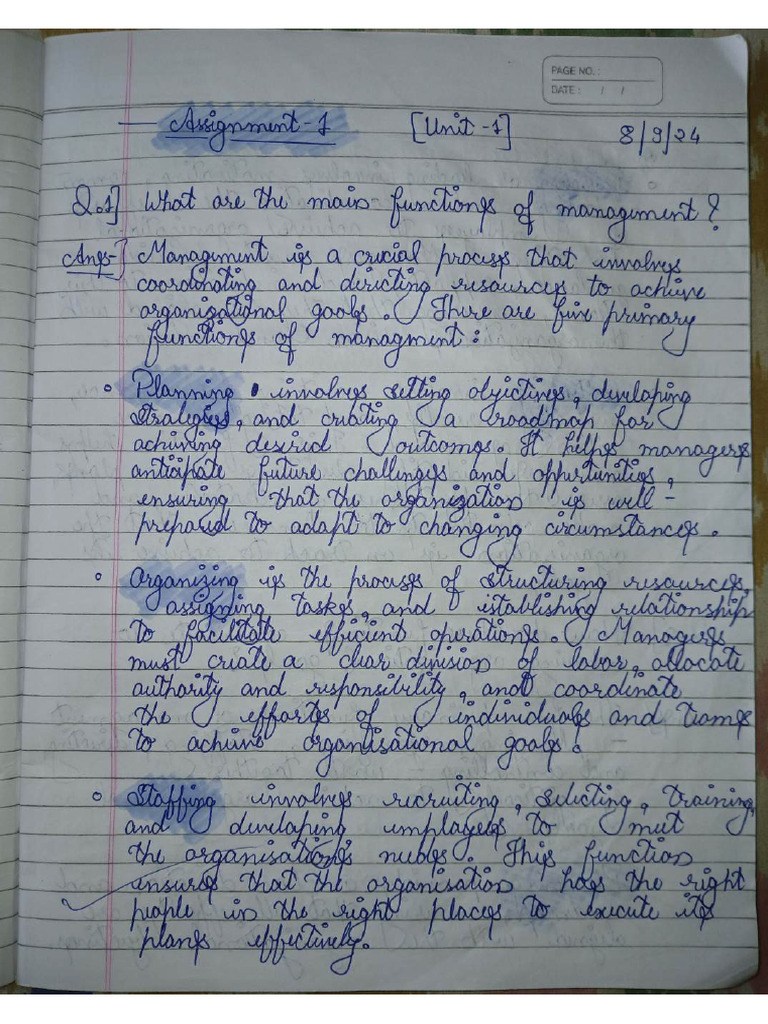 PAGE NO. :
DATE : / /
Assignment-1 [Unit-1] 8/9/24
Q.1] What are the main functions of management?
Ans-] Management is a crucial process that involves
coordinating and directing resources to achieve
organizational goals. There are five primary
functions of managment:
• Planning • involves setting objectives, developing
strategies, and creating a roadmap for
achieving desired outcomes. It helps managers
anticipate future challenges and opportunities,
ensuring that the organization is well-
prepared to adapt to changing circumstances.
• Organizing is the process of structuring resources,
assigning tasks, and establishing relationship
to facilitate efficient operations. Managers
must create a clear division of labor, allocate
authority and responsibility, and coordinate
the efforts of individuals and teams
to achieve organisational goals.
• Staffing involves recruiting, selecting, training,
and developing employees to meet
the organisation's needs. This function
ensures that the organisation has the right
people in the right places to execute its
plans effectively.